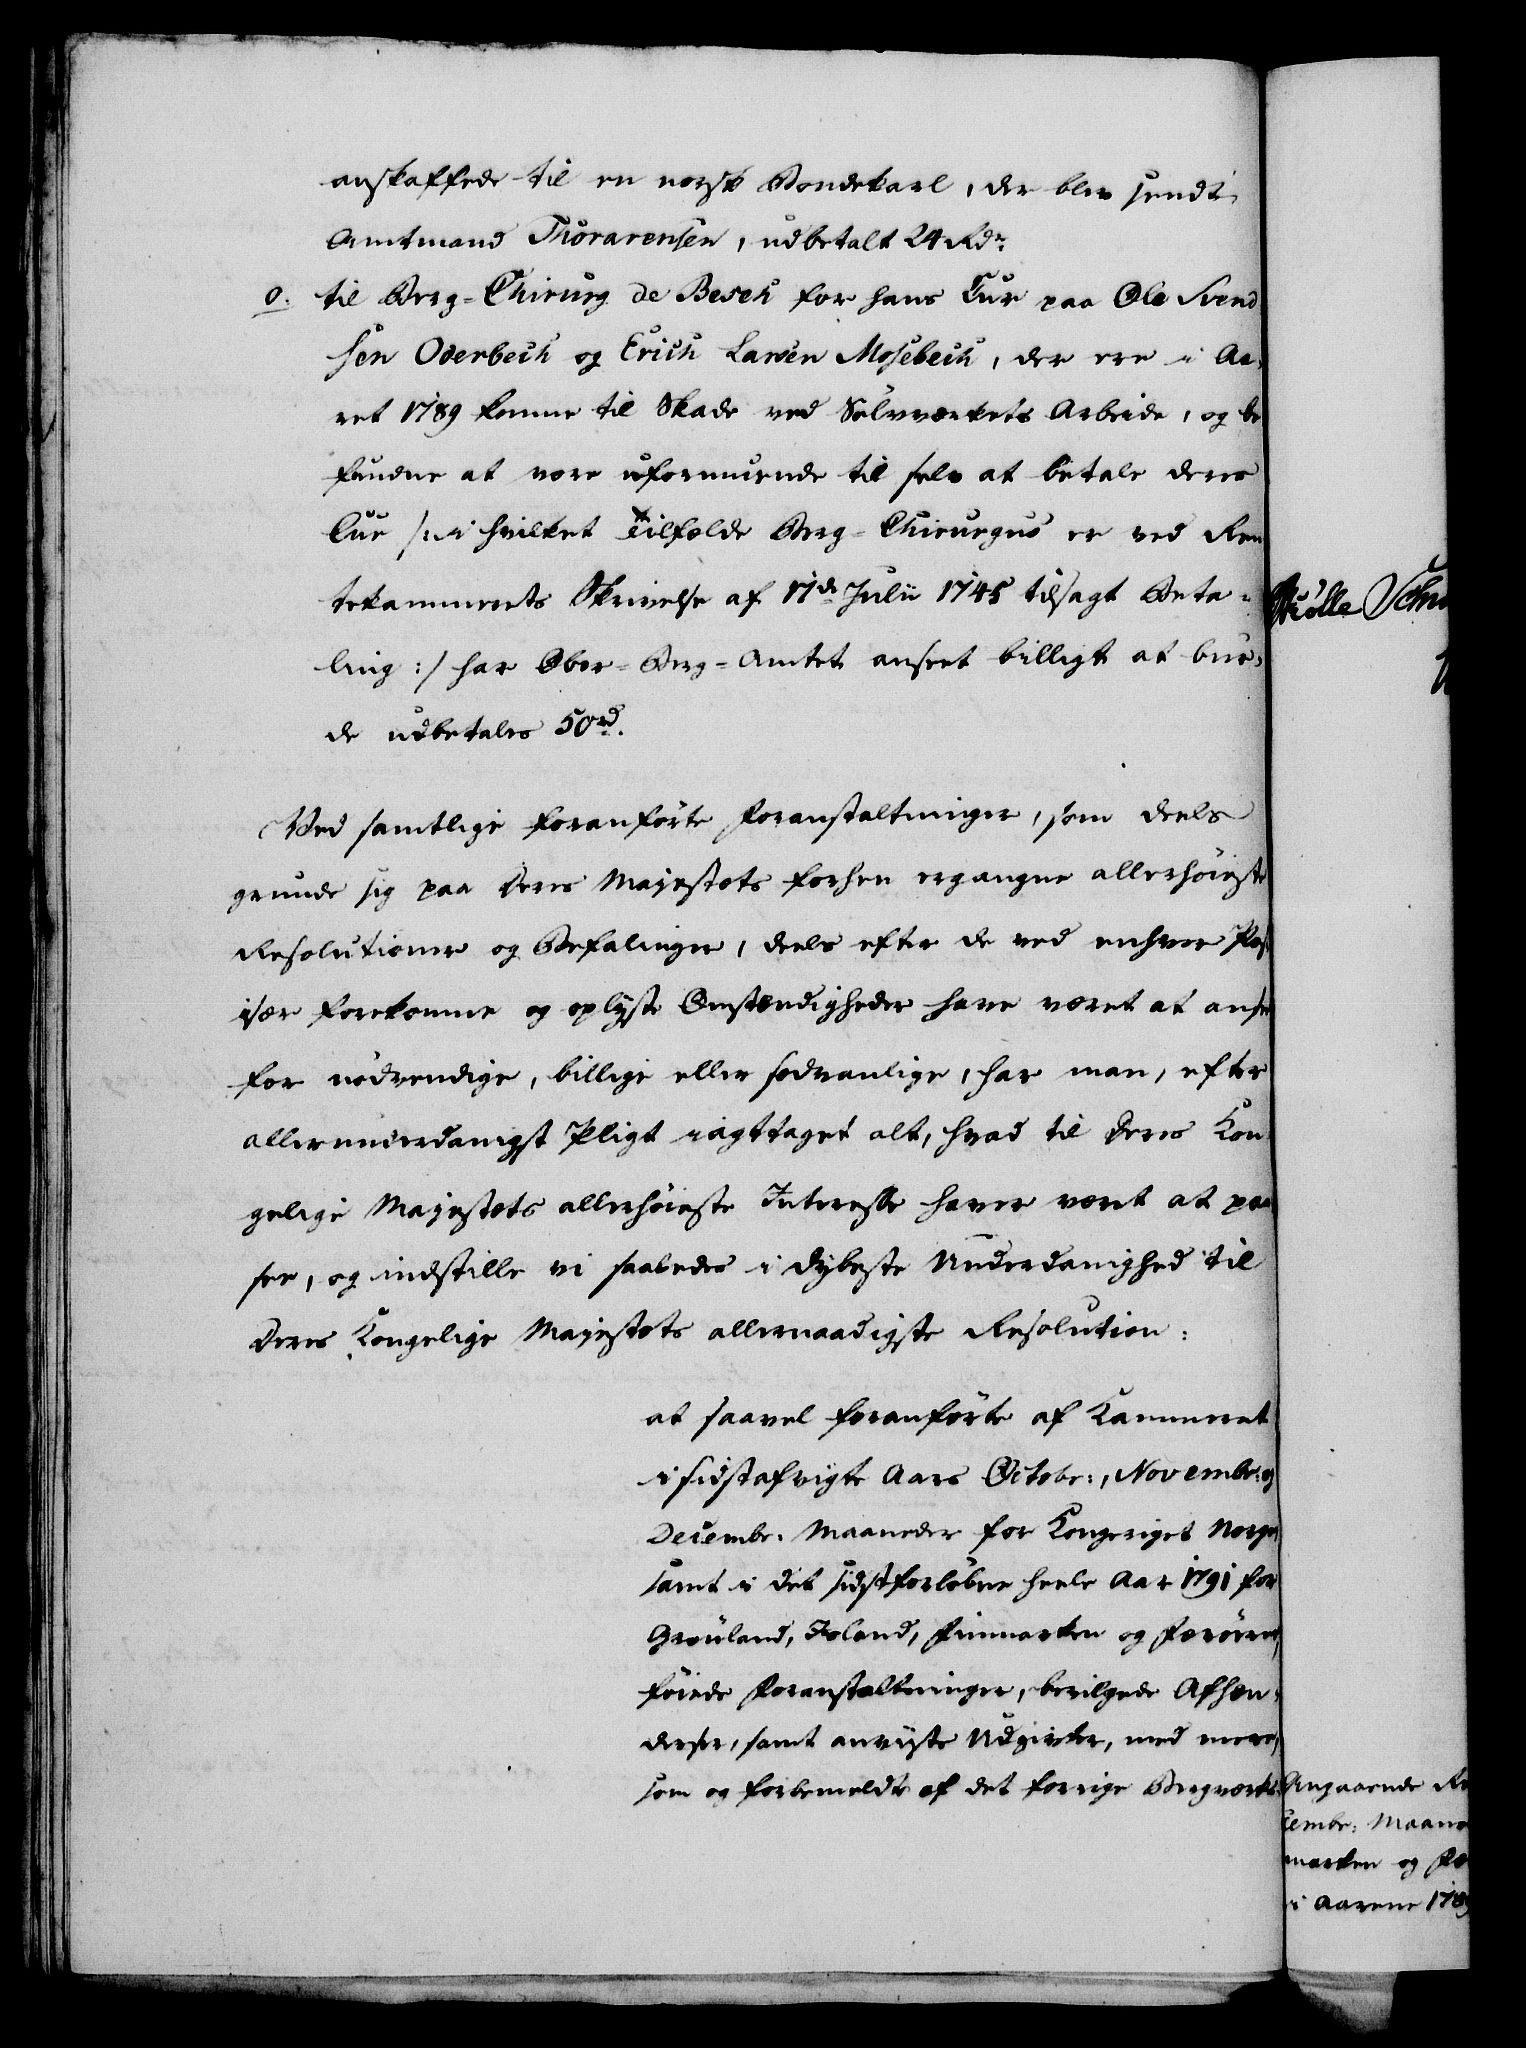 anskaffede til en norsk Bondekarl, der blev sendt
Amtmand Thorarensen, udbetalt 24 Rdr.
o. til Berg-Chirurg de Besch for hans Cur paa Ole Svend
sen Oderbech og Erich Larsen Mosebech, der ere i Aa-
ret 1789 komne til Skade ved Sølvværkets Arbeide, og be
fundne at være uformuende til selv at betale deres
Cur /: i hvilket Tilfælde Berg-Chirurgus er ved Ren
tekammerets Skrivelse af 17de Julii 1745 tilsagt Beta-
ling :/ har Ober-Berg-Amtet anseet billigt at bur-
de udbetales 50 rd.
Ved samtlige foranførte Foranstaltninger, som deels
grunde sig paa Deres Majestæts forhen ergangne allerhøieste
Resolutioner og Befalinger, deels efter de ved enhver Post
især forekomne og oplyste Omstændigheder have været at anse
for nødvendige, billige eller sedvanlige, har man, efter
allerunderdanigst Pligt iagttaget alt, hvad til Deres Kon
gelige Majestæts allerhøieste Interesse haver været at paa
see, og indstille vi saaledes i dybeste Underdanighed til
Deres Kongelige Majestæts allernaadigste Resolution:
at saavel foranførte af Kammeret
i sidstafvigte Aars Octobr:, Novembr: og
Decembr. Maaneder for Kongeriget Norge,
samt i det sidstforløbne heele Aar 1791 for
Grønland, Island, Finmarken og Færøerne,
føiede Foranstaltninger, bevilgede Afhæn-
delser, samt anviiste Udgivter, med mere,
som og forbemeldte af det forrige Bergværks-
Angaaende Re
cembr: Maane
marken og Fæ
i Aarene 1789